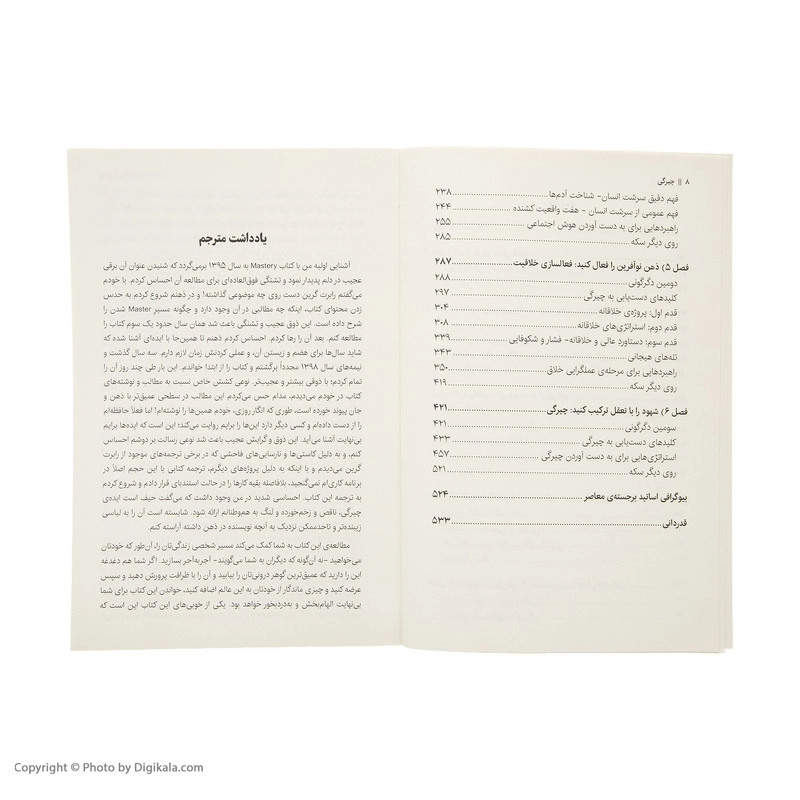 ۸ || چیرگی
فهم دقیق سرشت انسان- شناخت آدم‌ها ۲۳۸
فهم عمومی از سرشت انسان - هفت واقعیت کشنده ۲۴۴
راهبردهایی برای به دست آوردن هوش اجتماعی ۲۵۵
روی دیگر سکه ۲۸۵
فصل ۵) ذهن نوآفرین را فعال کنید: فعالسازی خلاقیت ۲۸۷
دومین دگرگونی ۲۸۸
کلیدهای دست‌یابی به چیرگی ۲۹۷
قدم اول: پروژه‌ی خلاقانه ۳۰۴
قدم دوم: استراتژی‌های خلاقانه ۳۰۸
قدم سوم: دستاورد عالی و خلاقانه- فشار و شکوفایی ۳۳۹
تله‌های هیجانی ۳۴۳
راهبردهایی برای مرحله‌ی عملگرایی خلاق ۳۵۰
روی دیگر سکه ۴۱۹
فصل ۶) شهود را با تعقل ترکیب کنید: چیرگی ۴۲۱
سومین دگرگونی ۴۲۱
کلیدهای دست‌یابی به چیرگی ۴۳۳
استراتژی‌هایی برای به دست آوردن چیرگی ۴۵۷
روی دیگر سکه ۵۲۱
بیوگرافی اساتید برجسته‌ی معاصر ۵۲۴
قدردانی ۵۳۳
یادداشت مترجم
آشنایی اولیه من با کتاب Mastery به سال ۱۳۹۵ برمی‌گردد که شنیدن عنوان آن برقی
عجیب در دلم پدیدار نمود و تشنگی فوق‌العاده‌ای برای مطالعه آن احساس کردم. با خودم
می‌گفتم رابرت گرین دست روی چه موضوعی گذاشته! و در ذهنم شروع کردم به حدس
زدن محتوای کتاب، اینکه چه مطالبی در آن وجود دارد و چگونه مسیر Master شدن را
شرح داده است. این ذوق عجیب و تشنگی باعث شد همان سال حدود یک سوم کتاب را
مطالعه کنم. بعد آن را رها کردم. احساس کردم ذهنم تا همین‌جا با ایده‌ای آشنا شده که
شاید سال‌ها برای هضم و زیستن آن، و عملی کردنش زمان لازم دارم. سه سال گذشت و
نیمه‌های سال ۱۳۹۸ مجدداً برگشتم و کتاب را از ابتدا خواندم. این بار طی چند روز آن را
تمام کردم؛ با ذوقی بیشتر و عجیب‌تر. نوعی کشش خاص نسبت به مطالب و نوشته‌های
کتاب در خودم می‌دیدم، مدام حس می‌کردم این مطالب در سطحی عمیق‌تر با ذهن و
جان پیوند خورده است، طوری که انگار روزی، خودم همین‌ها را نوشته‌ام! اما فعلاً حافظه‌ام
را از دست داده‌ام و کسی دیگر دارد این‌ها را برایم روایت می‌کند؛ این است که ایده‌ها برایم
بی‌نهایت آشنا می‌آید. این ذوق و گرایش عجیب باعث شد نوعی رسالت بر دوشم احساس
کنم، و به دلیل کاستی‌ها و نارسایی‌های فاحشی که در برخی ترجمه‌های موجود از رابرت
گرین می‌دیدم و با اینکه به دلیل پروژه‌های دیگرم، ترجمه کتابی با این حجم اصلاً در
برنامه کاری‌ام نمی‌گنجید، بلافاصله بقیه کارها را در حالت استندبای قرار دادم و شروع کردم
به ترجمه این کتاب. احساسی شدید در من وجود داشت که می‌گفت حیف است ایده‌ی
چیرگی، ناقص و زخم‌خورده و لَنگ به هم‌وطنانم ارائه شود. شایسته است آن را به لباسی
زیبنده‌تر و تاحدممکن نزدیک به آنچه نویسنده در ذهن داشته آراسته کنم.
مطالعه‌ی این کتاب به شما کمک می‌کند مسیر شخصی زندگی‌تان را، آن‌طور که خودتان
می‌خواهید -نه آن‌گونه که دیگران به شما می‌گویند- آجربه‌آجر بسازید. اگر شما هم دغدغه
این را دارید که عمیق‌ترین گوهر درونی‌تان را بیابید و آن را با ظرافت پرورش دهید و سپس
عرضه کنید و چیزی ماندگار از خودتان به این عالم اضافه کنید، خواندن این کتاب برای شما
بی‌نهایت الهام‌بخش و به‌دردبخور خواهد بود. یکی از خوبی‌های این کتاب این است که
Copyright © Photo by Digikala.com